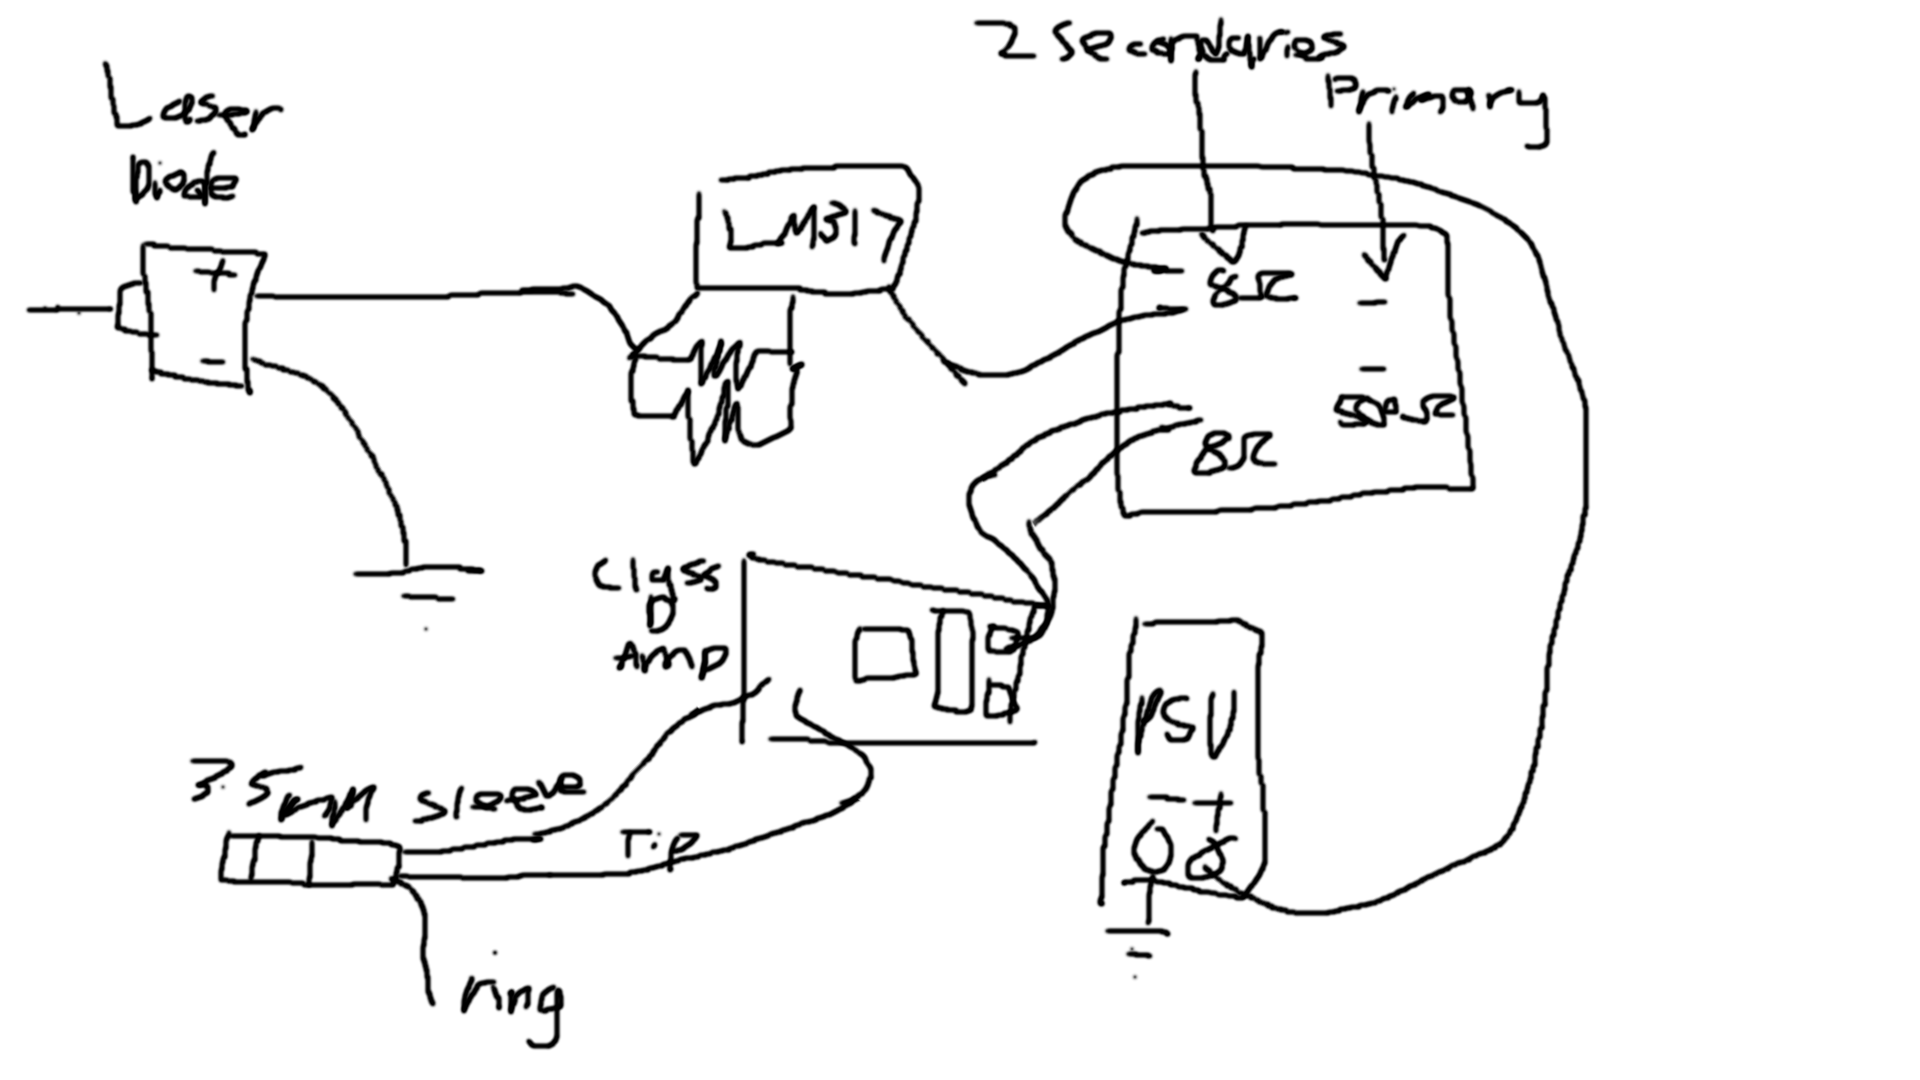 2 Secandaries
Primary
Laser
Diode
LM317
+
-
8Ω
500Ω
8Ω
Class
D
Amp
PSU
- +
3.5mm
Sleeve
Tip
ring